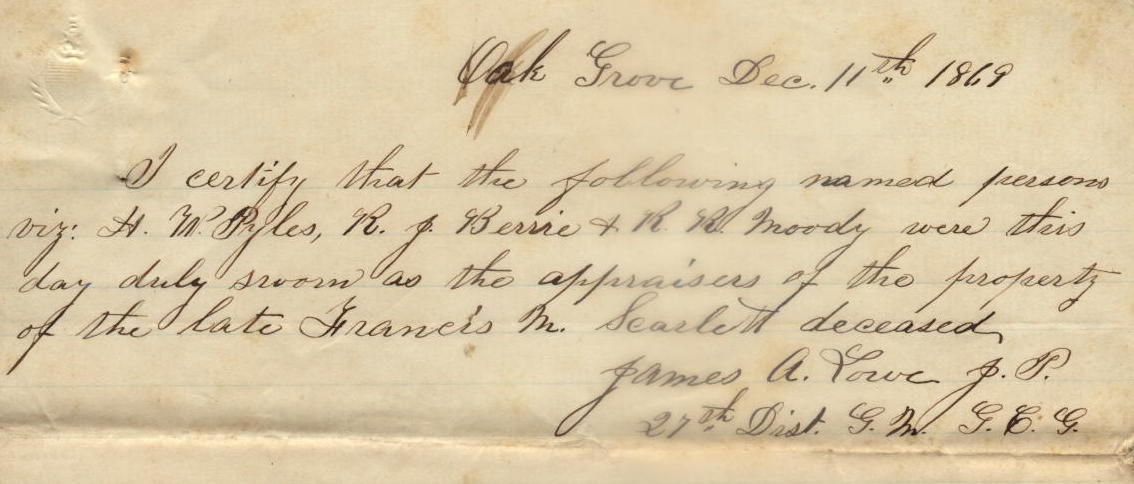 Oak Grove Dec. 11th 1869
I certify that the following named persons
viz: H. W. Pyles, R. J. Berrie & R. R. Moody were this
day duly sworn as the appraisers of the property
of the late Francis M. Scarlett deceased,
James A. Lowe J. P.
27th Dist. G. M. G. C. G.